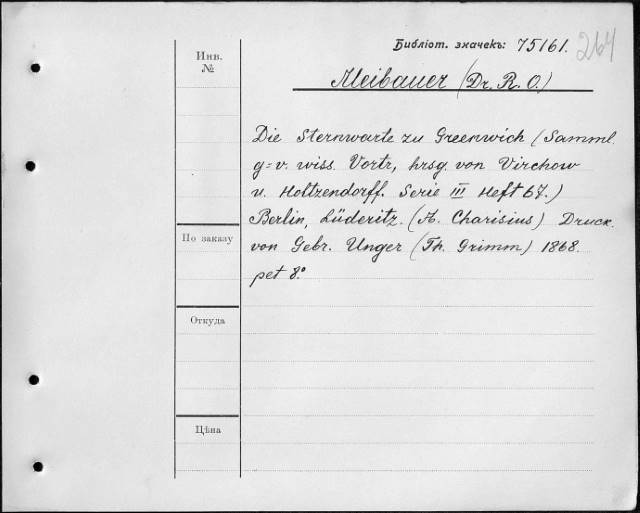 Библіот. значекъ: 75161.
264
Инв.
№
Meibauer (Dr. R. O.)
Die Sternwarte zu Greenwich (Samml.
g=v. wiss. Vortr., hrsg. von Virchow
u. Holtzendorff. Serie III Heft 67.)
Berlin, Lüderitz. (A. Charisius) Druck.
По заказу
von Gebr. Unger (Th. Grimm) 1868.
pet 8.°
Откуда
Цѣна